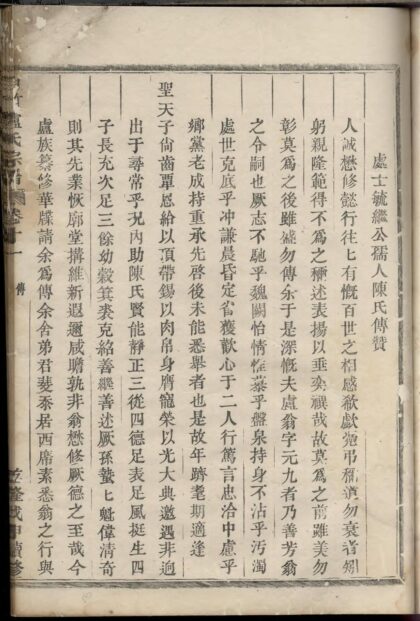 處士毓繼公孺人陳氏傳贊
人誠懋修懿行徃徃有慨百世之相感欷歔憑弔稱道勿衰者矧
躬親隆範得不爲之極述表揚以垂奕禩哉故莫爲之前雖美勿
彰莫爲之後雖盛勿傳余于是深慨夫盧翁字元九者乃善芳翁
之令嗣也厥志不馳乎魏闕怡情惟慕乎盤泉持身不沾乎汚濁
處世克底乎冲謙晨昏定省獲歡心于二人行篤言忠洽中處乎
鄉黨老成持重承先啓後未能悉舉者也是故年躋耄期適逢
聖天子尚齒覃恩給以頂帶錫以肉帛身膺寵榮以光大典遭遇非逈
出于尋常乎況内助陳氏賢能靜正三從四德足表足風挺生四
子長充次足三餘幼毅箕裘克紹善繼善述厥孫蟄蟄魁偉清奇
則其先業恢廓堂搆維新遐邇咸瞻孰非翁懋修厥德之至哉今
盧族纂修華牒請余爲傳余舍弟君斐忝居西席素悉翁之行與
盧氏宗譜
傳
乾隆戊申續修